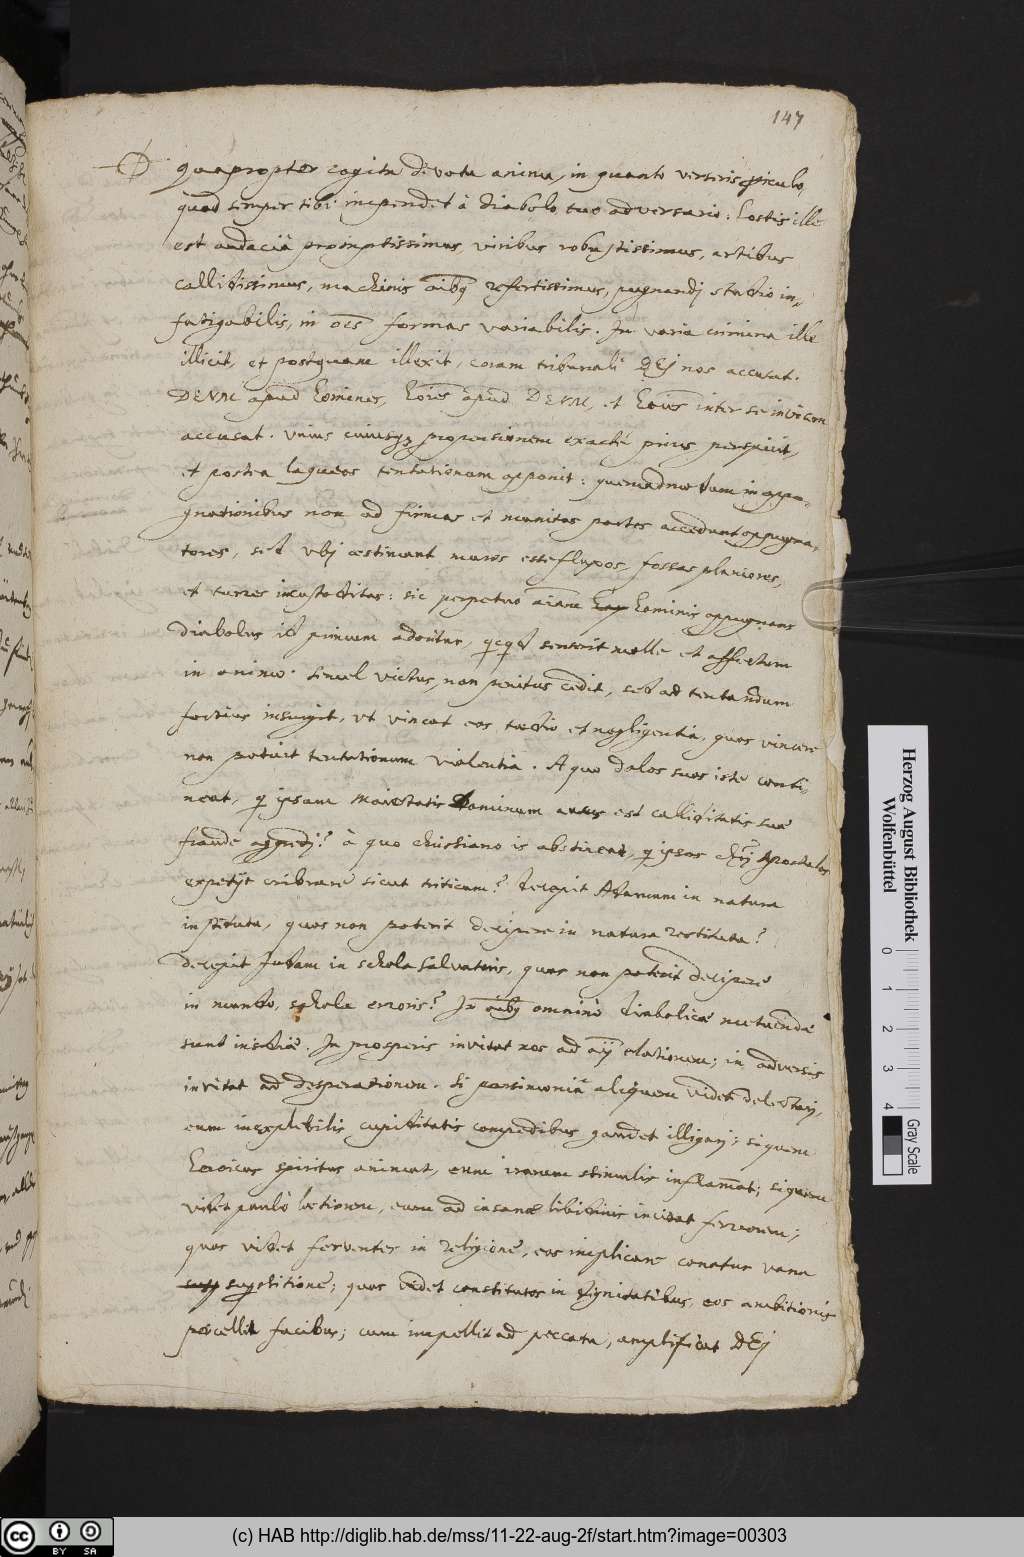 147
Quapropter cogita devota anima, in quanto verseris piculo,
quod semper tibi impendet à diabolo tuo adversario: hostis ille
est audaciâ promptissimus, viribus robustissimus, artibus
callidissimus, machinis oibq refertissimus, pugnandj studio in-
fatigabilis, in oes formas variabilis. In varia crimina ille
illicit, et postquam illexit, coram tribunali DEj nos accusat.
DEVM apud homines, hoies apud DEVM, et hoies inter se invicem
accusat. Unius cuiusq propensionem exactè prius perspicit,
et postea laqueos tentationum apponit: quemadmodum in oppu-
gnationibus non ad firmas et munitas partes accedunt oppugna-
tores, sed vbj aestimant muros esse fluxos, fossas planiores,
et turres incustoditas: sic perpetuo aiam hominis oppugnans
diabolus id primum adoritur, qcqd senserit molle et affectum
in animo. Semel victus, non penitus cedit, sed ad tentandum
fortius insurgit, vt vincat eos taedio et negligentia, quos vincere
non potuit tentationum violentia. A quo dolos suos iste conti-
neat, q ipsum Maiestatis Dominum ausus est calliditatis suae
fraude aggredj? à quo christiano is abstineat, q ipsos chrj Apostolos
expetijt cribrare sicut triticum? Decepit Adamum in natura
instituta, quos non poterit decipere in natura restituta?
decepit Judam in schola Salvatoris, quos non poterit decipere
in mundo, schola erroris? In oibq omninò diabolicae metuendae
sunt insidiae. In prosperis invitat nos ad aj elationem; in adversis
invitat ad desperationem. Si parsimoniâ aliquem videt delectarj,
eum inexplebilis cupiditatis compedibus gaudet illigarj; si quem
heroicus spiritus animat, eum irarum stimulis inflamat; si quem
videt paulò laetiorem, eum ad insanae libidinis incitat fervorem;
quos videt ferventes in religione, eos implicare conatur vana
supstitione; quos videt constitutos in dignitatibus, eos ambitionis
percellit facibus; cum impellit ad peccata, amplificat DEj
Herzog August Bibliothek
Wolfenbüttel
0 1 2 3 4
Gray Scale
cc BY SA
(c) HAB http://diglib.hab.de/mss/11-22-aug-2f/start.htm?image=00303